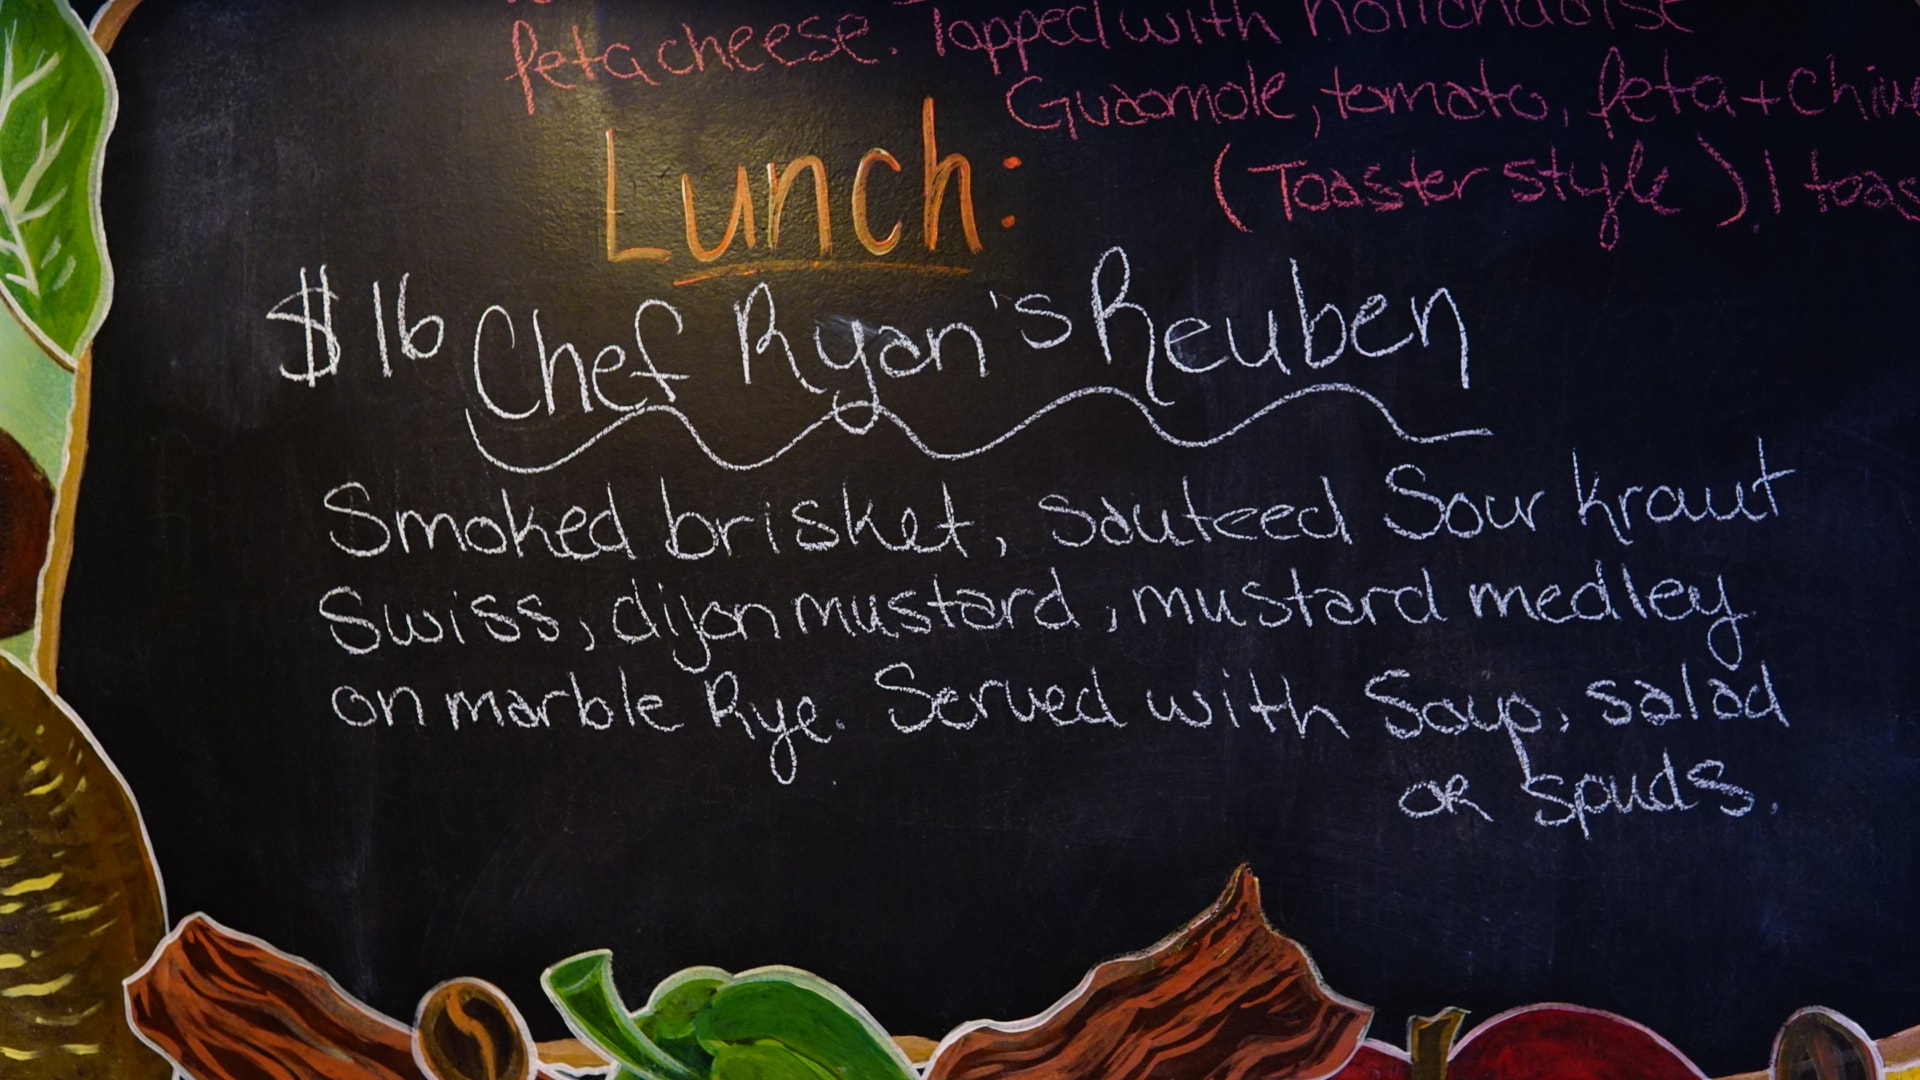 feta cheese. Topped with
Guacmole, tomato, feta + Chive
(Toaster style). 1 toas
Lunch:
$16 Chef Ryan's Reuben
Smoked brisket, sauteed Sour kraut
Swiss, dijon mustard, mustard medley
on marble Rye. Served with Soup, salad
or spuds.